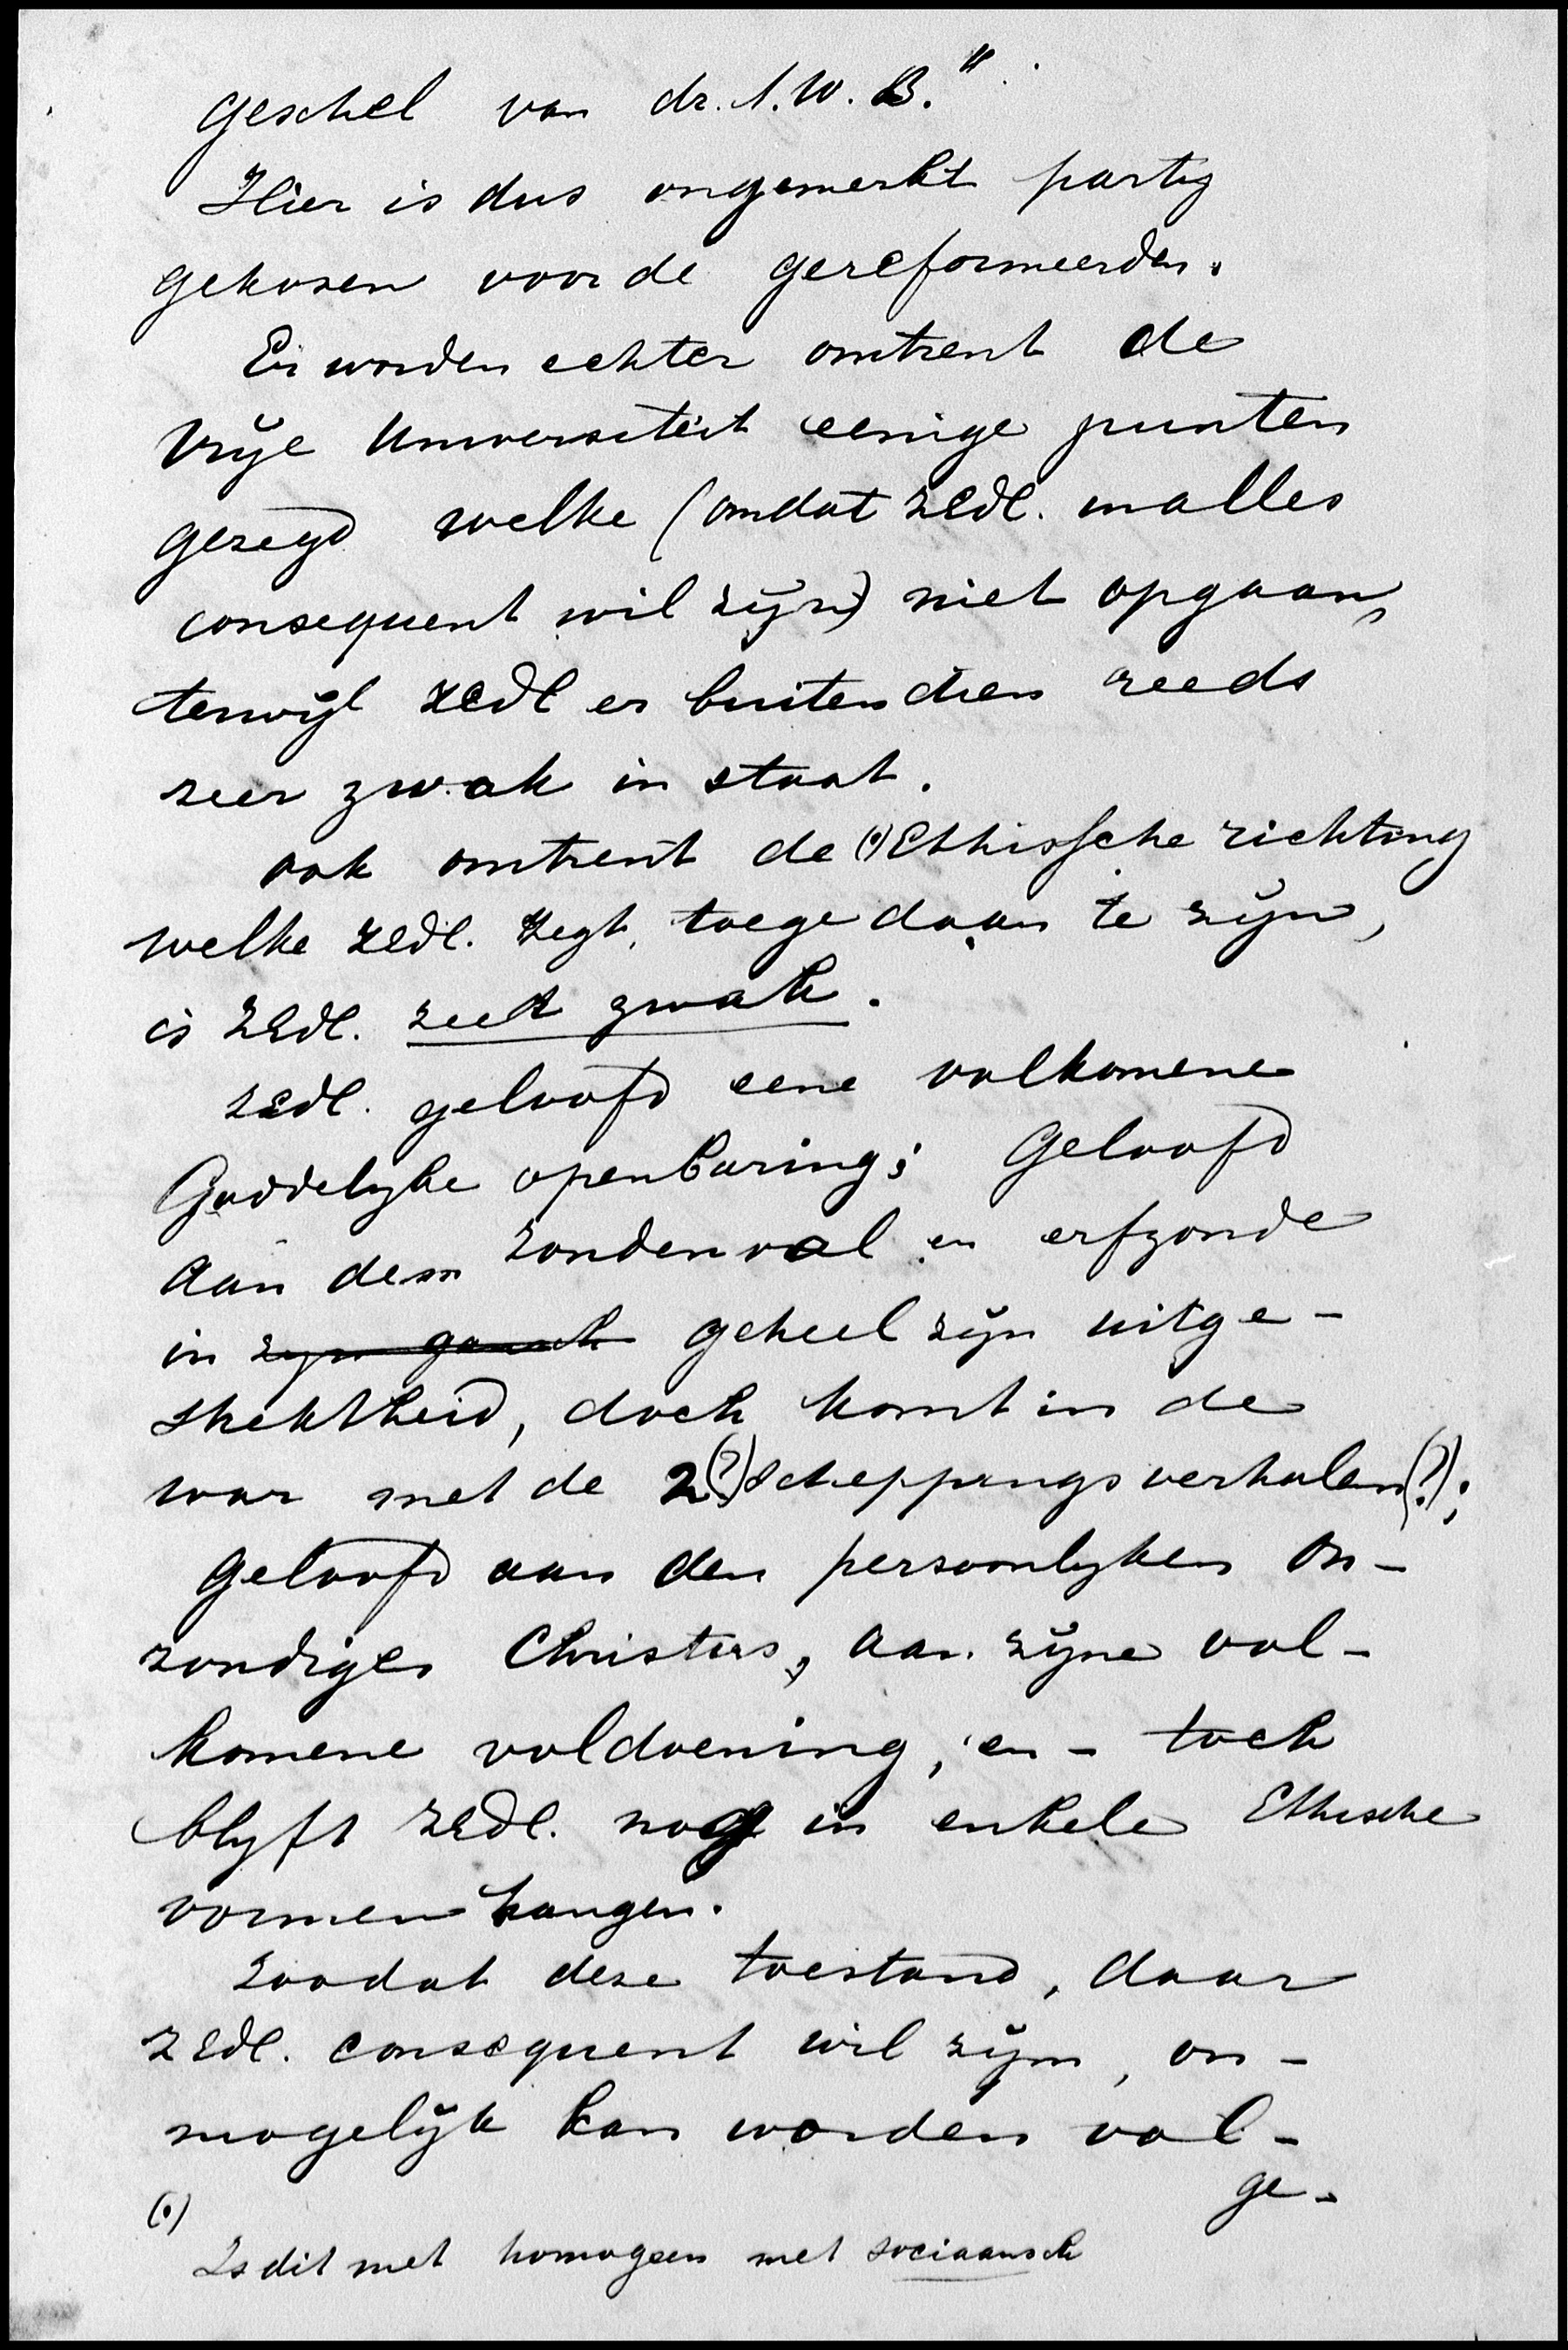 geschel van dr. A. W. B."
Hier is dus ongemerkt partij
gekosen voor de gereformeerden.
Er worden echter omtrent de
Vrije Universiteit eenige punten
gezegd welke (omdat ZEdl. in alles
consequent wil zijn) niet opgaan,
terwijl ZEdl er buitendien reeds
zeer zwak in staat.
ook omtrent de (•) Ethissche richting
welke ZEdl. zegt, toegedaan te zijn,
is ZEdl. zeer zwak.
ZEdl. geloofd eene volkomene
Goddelijke openbaring; Geloofd
aan den zondenval en erfzonde
in zijn gansch geheel zijn uitge-
strektheid, doch komt in de
war met de 2(?) scheppingsverhalen(?);
Geloofd aan den persoonlijken On-
zondigen Christus, aan zijne vol-
komene voldoening, en - toch
blijft ZEdl. nog in enkele Ethische
vormen hangen.
Zoodat deze toestand, daar
ZEdl. consequent wil zijn, on-
mogelijk kan worden vol-
ge-
(•)
Is dit met homogeen met sociaansch